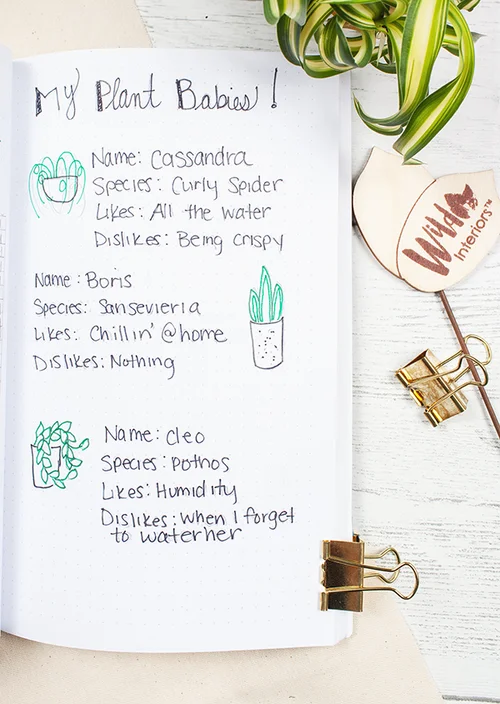 My Plant Babies!
Name: Cassandra
Species: Curly Spider
Likes: All the water
Dislikes: Being crispy
Name: Boris
Species: Sansevieria
Likes: Chillin' @home
Dislikes: Nothing
Name: Cleo
Species: Pothos
Likes: Humidity
Dislikes: When I forget
to water her
Wild
Interiors™